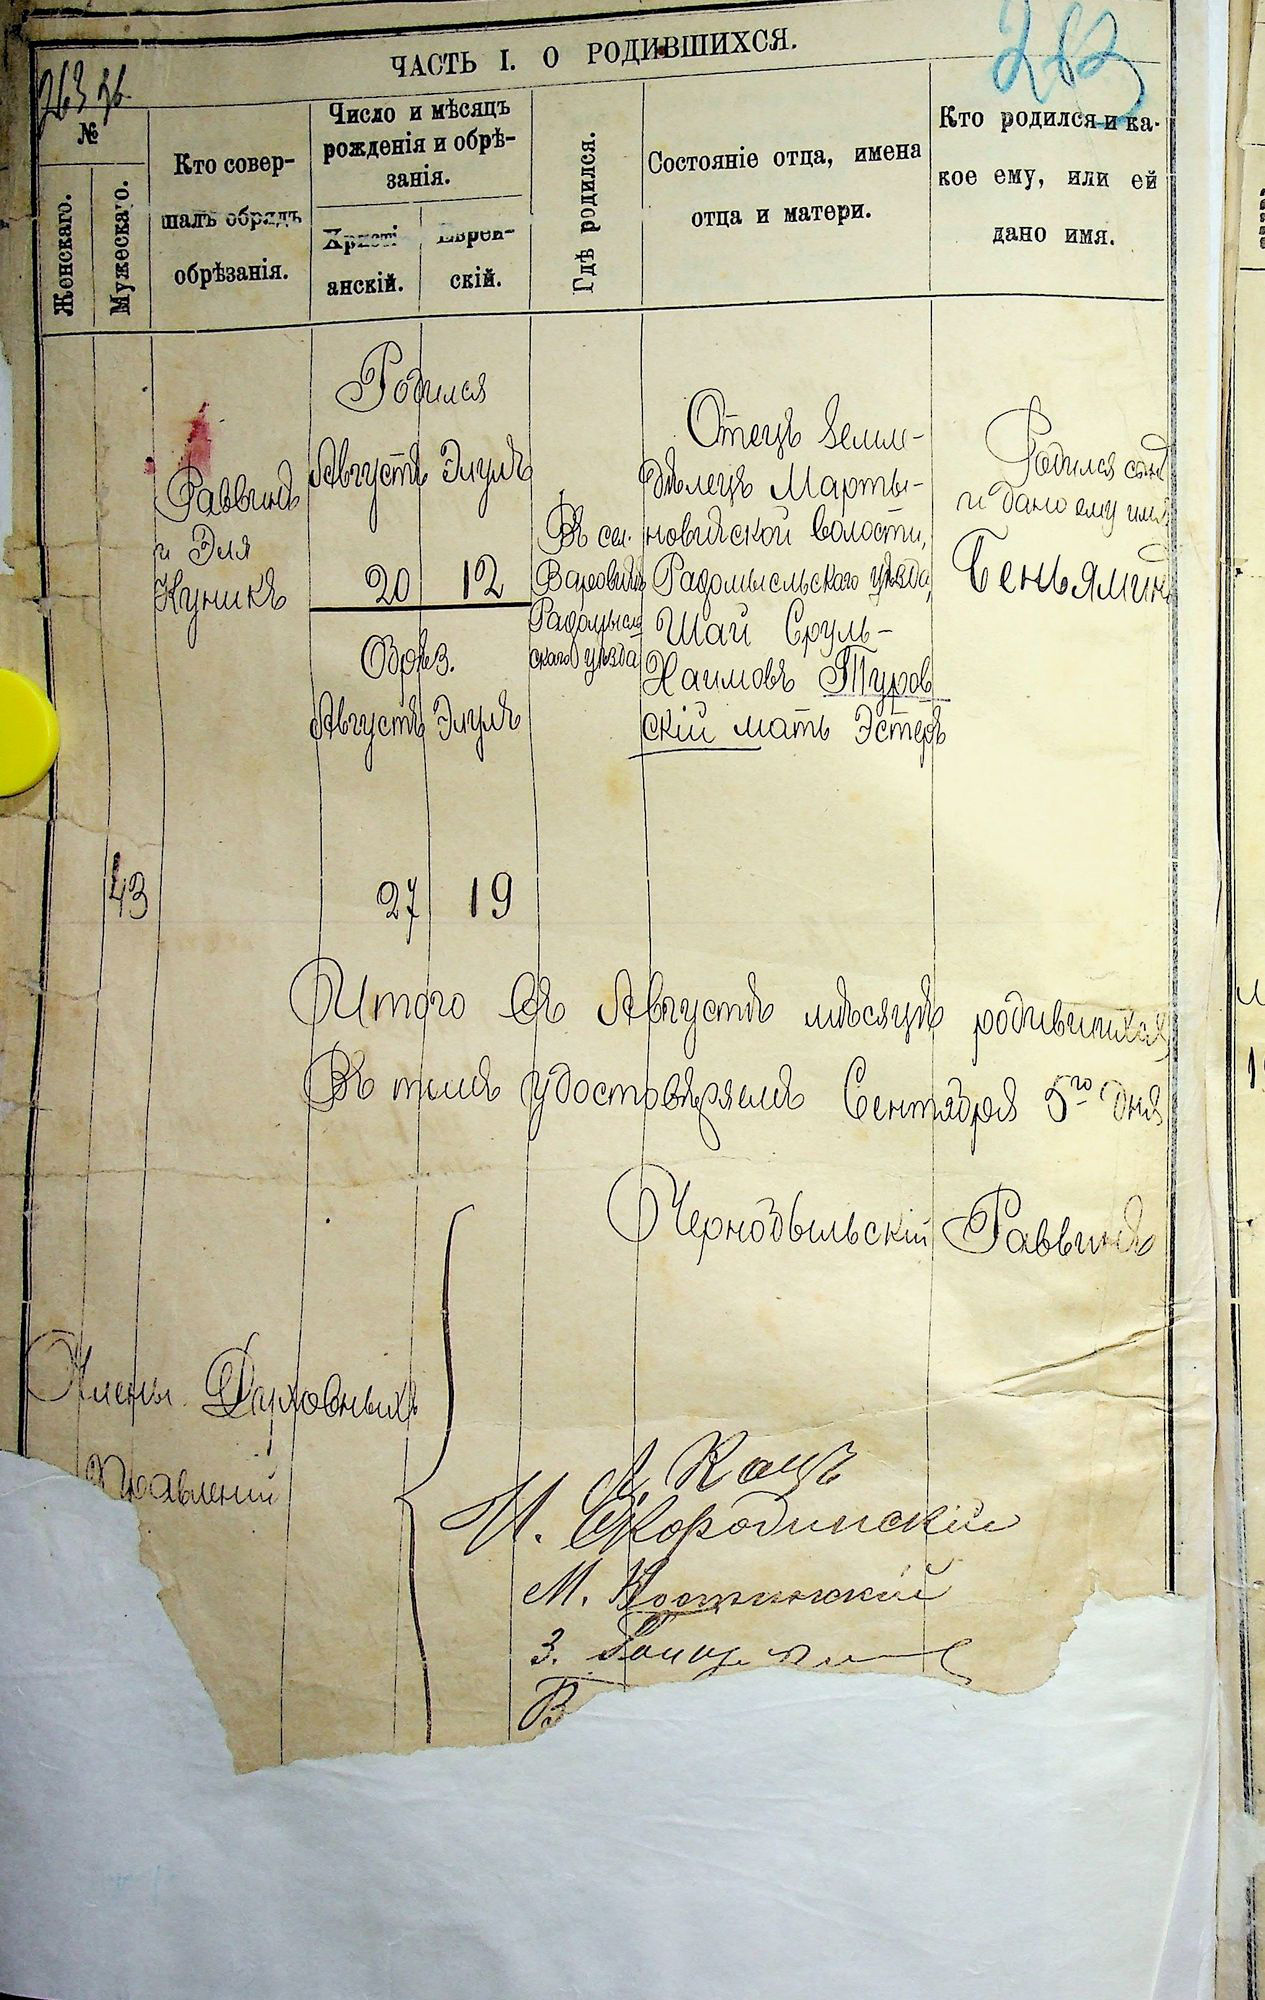 ЧАСТЬ I. О РОДИВШИХСЯ.
263
№
Женскаго.
Мужескаго.
Кто совер-
шалъ обрядъ
обрѣзанія.
Число и мѣсяцъ
рожденія и обрѣ-
занія.
Христі-
анскій.
Еврей-
скій.
Гдѣ родился.
Состояніе отца, имена
отца и матери.
Кто родился и ка-
кое ему, или ей
дано имя.
43
Раввинъ
и Эля
Куникъ
Родился
Августъ Элулъ
20 12
Обрѣз.
Августъ Элулъ
27 19
Въ сел.
Радомысль
скаго уѣзда
Отецъ Земле-
дѣлецъ Марты-
новичской волости,
Радомысльскаго уѣзда,
Шай Сруль-
Хаимовъ Туров
скій мать Эстеръ
Родился сынъ
и дано ему имя
Беньяминъ
Итого въ Августѣ мѣсяцѣ родившихся
Въ томъ удостовѣряемъ Сентября 5го дня
Чернобыльскій Раввинъ
Члены Духовныхъ
Правленій
Кацъ
И. Скородинскій
М.
З.
В